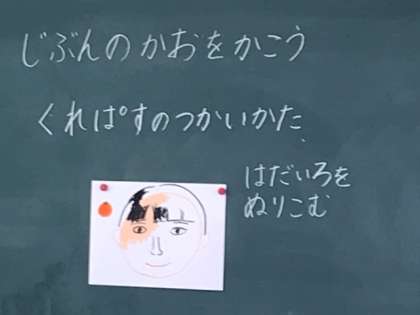 じぶんのかおをかこう
くれぱすのつかいかた
はだいろを
ぬりこむ